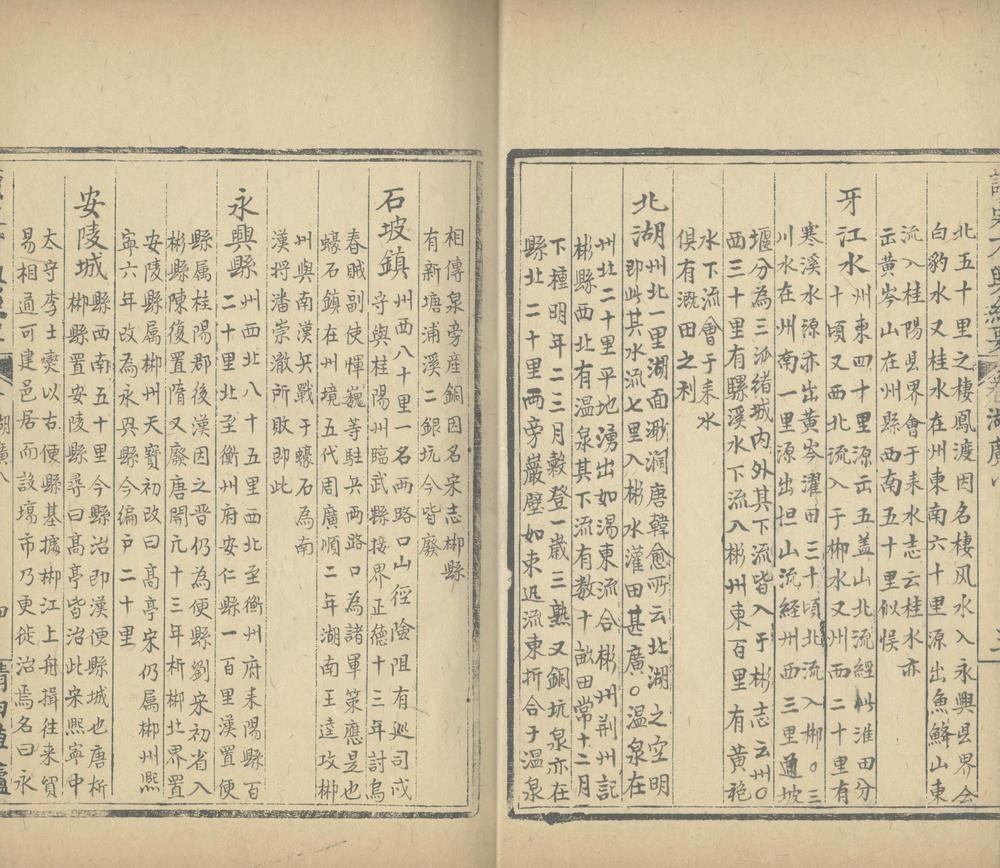 北五十里之棲鳳渡因名棲风水入永興县界会
白豹水又桂水在州東南六十里源出魚鱗山東
流入桂陽县界會于耒水志云桂水亦
云黄岑山在州縣西南五十里似悮
牙江水州東四十里源云五盖山北流經此淮田分
十頃又西北流入于郴水又州西二十里有
寒溪水源亦出黄岑濯田三十頃北流入郴。三
川水在州南一里源出坦山流經州西三里通坡
堰分為三泒绪城内外其下流皆入于彬志云州。
西三十里有騾溪水下流入彬州東百里有黄袍
水下流會于耒水
俱有溉田之利
北湖州北一里湖面渺濶唐韓愈所云北湖之空明
即此其水流七里入彬水灌田甚廣。温泉在
州北二十里平地湧出如湯東流合彬州荆州記
彬縣西北有温泉其下流有数十畝田常十二月
下種明年二三月穀登一歲三熟又銅坑泉亦在
縣北二十里两旁巖壁如束迅流東折合于温泉
相傳泉旁産銅因名宋志郴縣
有新塘浦溪二銀坑今皆廢
石坡鎮州西八十里一名两路口山徑險阻有巡司戍
守與桂陽州臨武縣接界正德十三年討烏
春賊副使惲巍等駐兵两路口為諸軍策應是也
蠔石鎮在州境五代周廣順二年湖南王逵攻郴
州與南漢兵戰于蠔石為南
漢将潘崇澈所敗即此
永興縣州西北八十五里西北至衡州府耒陽縣百
二十里北至衡州府安仁縣一百里漢置便
縣属桂陽郡後漢因之晋仍為便縣劉宋初省入
彬縣陳復置隋又廢唐開元十三年析郴北界置
安陵縣属郴州天寶初改曰髙亭宋仍属郴州熙
寧六年改為永兴縣今编戸二十里
安陵城縣西南五十里今縣治即漢便縣城也唐析
郴縣置安陵縣尋曰髙亭皆治此宋熙寧中
太守李士爕以古便縣基據郴江上舟揖往来貿
易相通可建邑居而設塲市乃更徙治焉名曰永